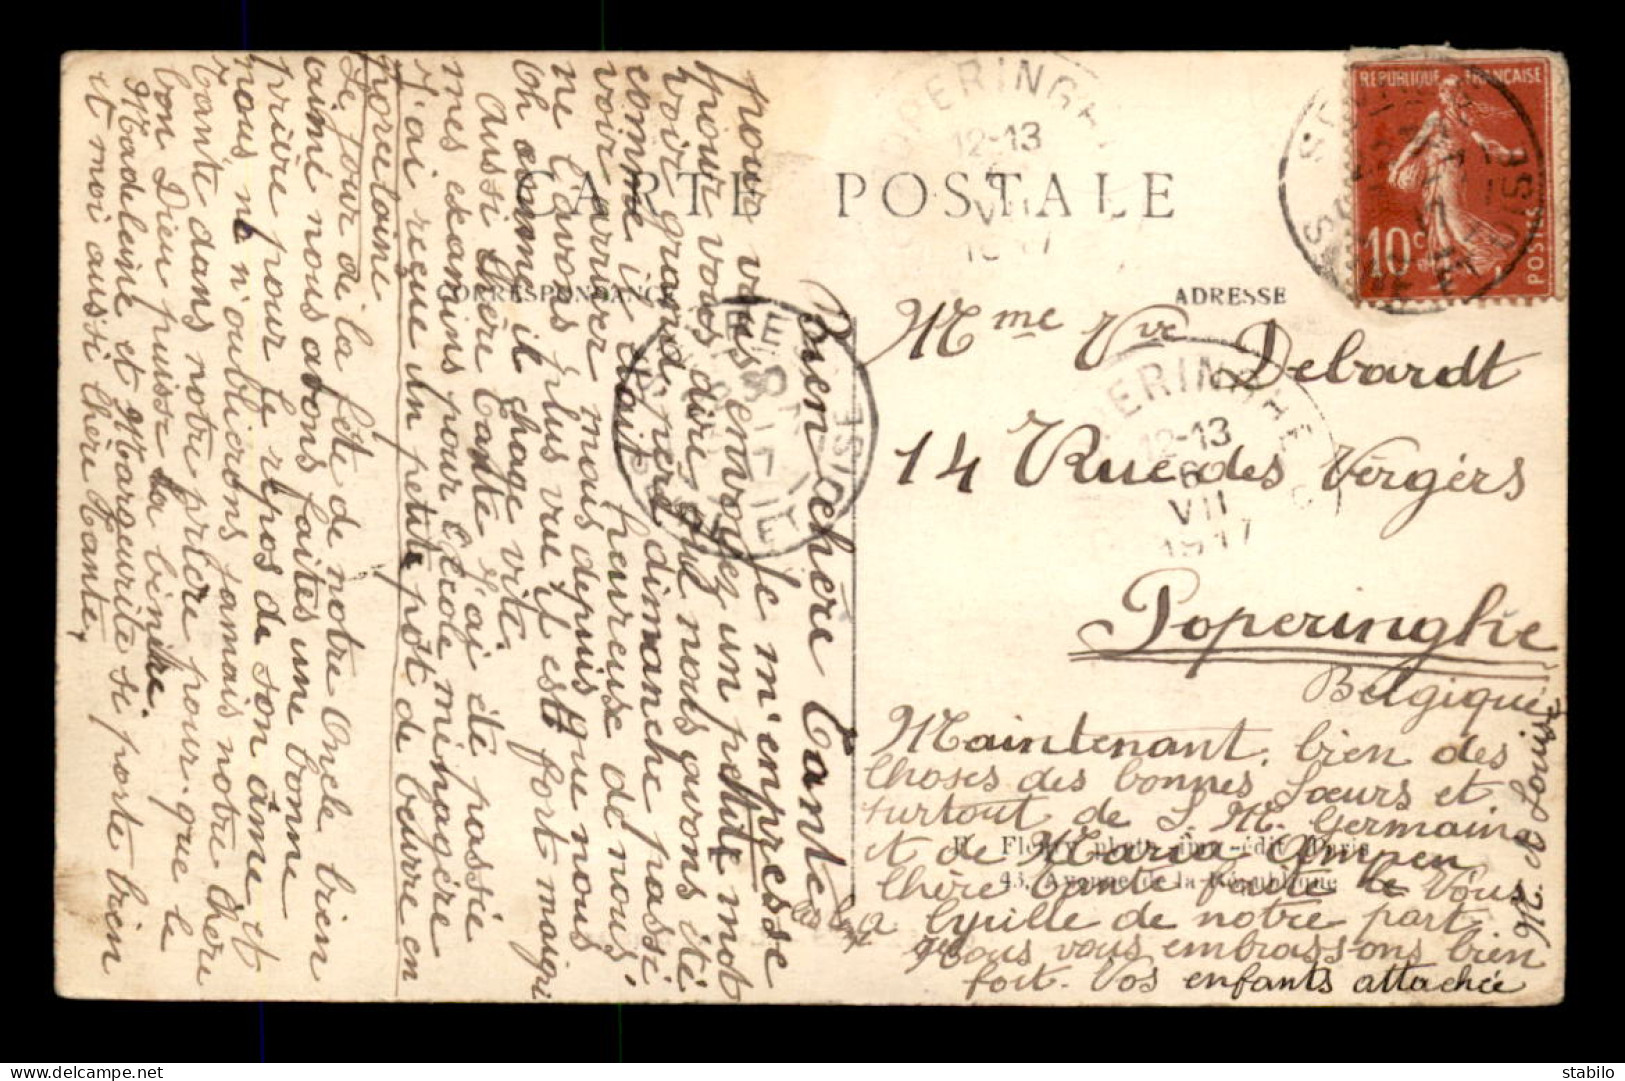 CARTE POSTALE
CORRESPONDANCE
ADRESSE
RÉPUBLIQUE FRANÇAISE
10c
POSTES
POPERINGHE
12-13
VII
POPERINGHE
12-13
6
VII
1917
Mme Vve Debardt
14 Rue des Vergers
Poperinghe
Belgique
Bien chère Tante
Je m'empresse
pour vous envoyez un petite mot
pour vous dire que nous avons été
voir grand' père dimanche passé
comme il était heureuse de nous
voir arriver mais depuis que nous
ne l'avons plus vue il est fort maigri
Oh comme il chage vite.
Aussi chère Tante j'ai été passée
mes examins pour Ecole ménagère
J'ai reçue un petite pôt de beurre en
porcelaine
Le jour de la fête de notre Oncle bien
aimé nous avons faites une bonne
prière pour le repos de son âme et
nous ne n'oublierons jamais notre Chère
Tante dans notre prière pour que le
bon Dieu puisse la bénire.
Madeleine et Marguerite se porte bien
et moi aussi chère Tante,
Maintenant, bien des
choses des bonnes Sœurs et
surtout de S. M. Germaine
et de Maria Ampen
Chère Tante
de notre part
Nous vous embrassons bien
fort. Vos enfants attachée
Fleury
43, Avenue de la République